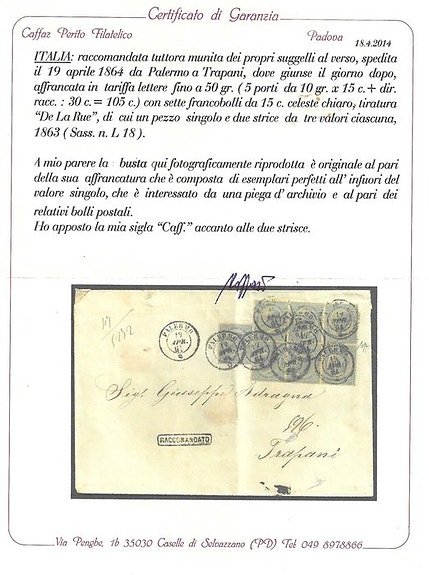 Certificato di Garanzia
Caffaz Perito Filatelico Padova 18.4.2014
ITALIA: raccomandata tuttora munita dei propri suggelli al verso, spedita
il 19 aprile 1864 da Palermo a Trapani, dove giunse il giorno dopo,
affrancata in tariffa lettere fino a 50 gr. ( 5 porti da 10 gr. x 15 c.+ dir.
racc. : 30 c.= 105 c.) con sette francobolli da 15 c. celeste chiaro, tiratura
"De La Rue", di cui un pezzo singolo e due strice da tre valori ciascuna,
1863 ( Sass. n. L 18 ).
A mio parere la busta qui fotograficamente riprodotta è originale al pari
della sua affrancatura che è composta di esemplari perfetti all' infuori del
valore singolo, che è interessato da una piega d' archivio e al pari dei
relativi bolli postali.
Ho apposto la mia sigla "Caff." accanto alle due strisce.
PALERMO
19
APR.
Sig. Giuseppe Adragna
RACCOMANDATO
Trapani
Via Penghe, 1b 35030 Caselle di Selvazzano (PD) Tel: 049 8978866